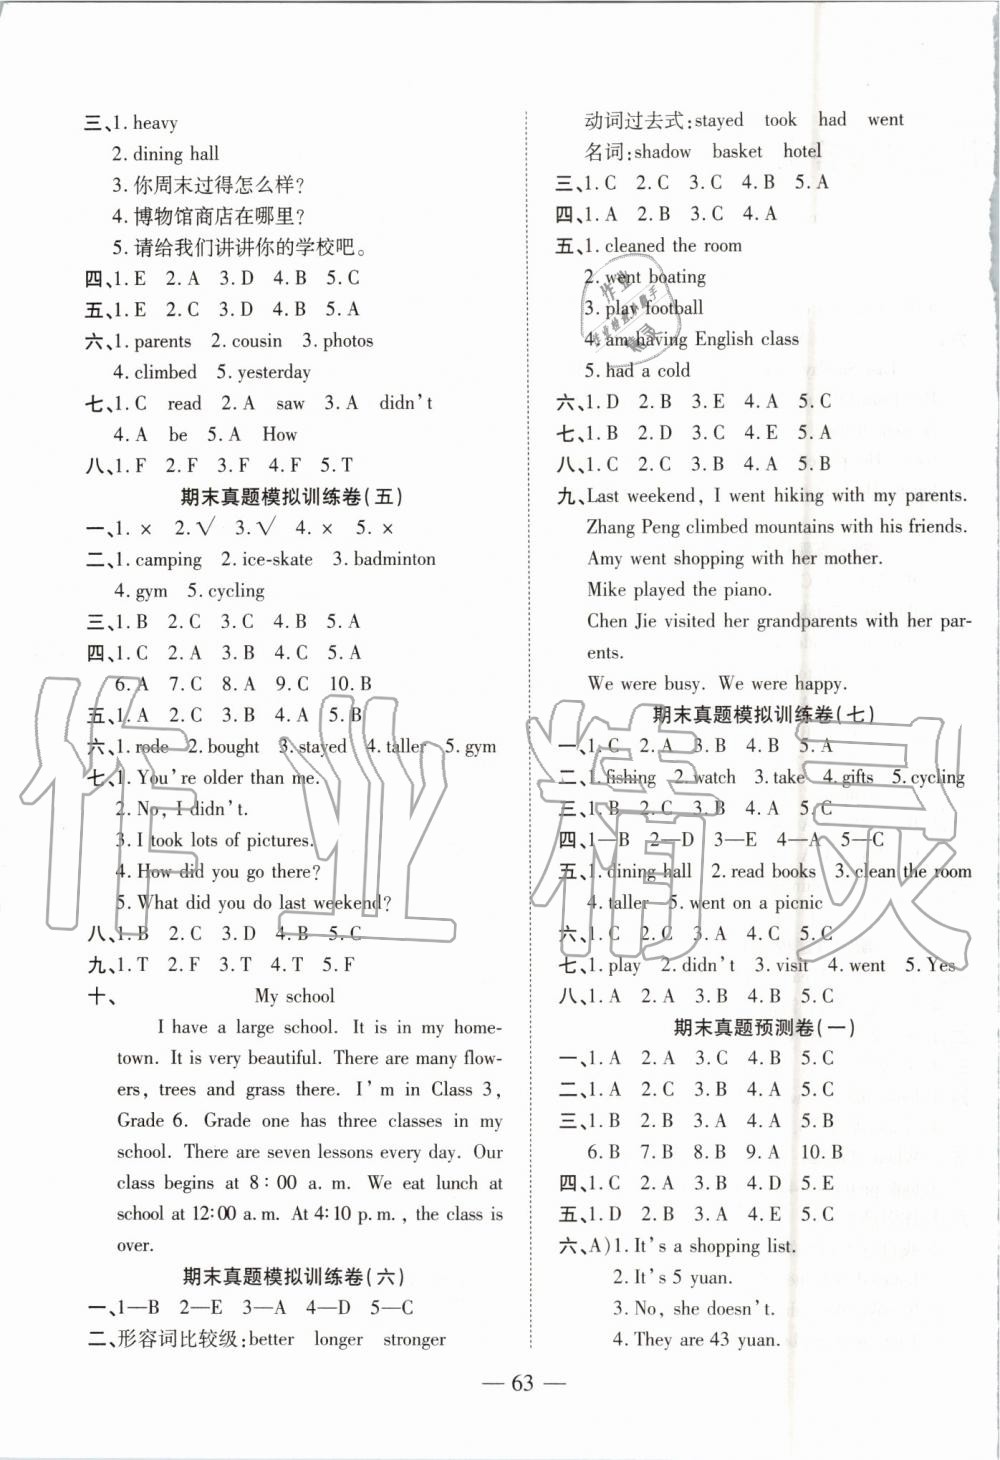 三、1. heavy
2. dining hall
3. 你周末过得怎么样?
4. 博物馆商店在哪里?
5. 请给我们讲讲你的学校吧。
四、1. E 2. A 3. D 4. B 5. C
五、1. E 2. C 3. D 4. B 5. A
六、1. parents 2. cousin 3. photos
4. climbed 5. yesterday
七、1. C read 2. A saw 3. A didn't
4. A be 5. A How
八、1. F 2. F 3. F 4. F 5. T
期末真题模拟训练卷(五)
一、1. × 2. √ 3. √ 4. × 5. ×
二、1. camping 2. ice-skate 3. badminton
4. gym 5. cycling
三、1. B 2. C 3. C 4. B 5. A
四、1. C 2. A 3. B 4. C 5. A
6. A 7. C 8. A 9. C 10. B
五、1. A 2. C 3. B 4. A 5. B
六、1. rode 2. bought 3. stayed 4. taller 5. gym
七、1. You're older than me.
2. No, I didn't.
3. I took lots of pictures.
4. How did you go there?
5. What did you do last weekend?
八、1. B 2. C 3. D 4. B 5. C
九、1. T 2. F 3. T 4. T 5. F
十、 My school
I have a large school. It is in my home-
town. It is very beautiful. There are many flow-
ers, trees and grass there. I'm in Class 3,
Grade 6. Grade one has three classes in my
school. There are seven lessons every day. Our
class begins at 8:00 a. m. We eat lunch at
school at 12:00 a. m. At 4:10 p. m. , the class is
over.
期末真题模拟训练卷(六)
一、1—B 2—E 3—A 4—D 5—C
二、形容词比较级:better longer stronger
动词过去式:stayed took had went
名词:shadow basket hotel
三、1. C 2. C 3. C 4. B 5. A
四、1. A 2. B 3. C 4. A
五、1. cleaned the room
2. went boating
3. play football
4. am having English class
5. had a cold
六、1. D 2. B 3. E 4. A 5. C
七、1. B 2. D 3. C 4. E 5. A
八、1. B 2. C 3. C 4. A 5. B
九、Last weekend, I went hiking with my parents.
Zhang Peng climbed mountains with his friends.
Amy went shopping with her mother.
Mike played the piano.
Chen Jie visited her grandparents with her par-
ents.
We were busy. We were happy.
期末真题模拟训练卷(七)
一、1. C 2. A 3. B 4. B 5. A
二、1. fishing 2. watch 3. take 4. gifts 5. cycling
三、1. B 2. C 3. B 4. A 5. C
四、1—B 2—D 3—E 4—A 5—C
五、1. dining hall 2. read books 3. clean the room
4. taller 5. went on a picnic
六、1. C 2. C 3. A 4. C 5. C
七、1. play 2. didn't 3. visit 4. went 5. Yes
八、1. A 2. A 3. B 4. B 5. C
期末真题预测卷(一)
一、1. A 2. A 3. C 4. B 5. C
二、1. A 2. C 3. B 4. A 5. C
三、1. B 2. B 3. A 4. A 5. B
6. B 7. B 8. B 9. A 10. B
四、1. C 2. A 3. B 4. D 5. E
五、1. D 2. B 3. A 4. E 5. C
六、A)1. It's a shopping list.
2. It's 5 yuan.
3. No, she doesn't.
4. They are 43 yuan.
— 63 —
作业精灵